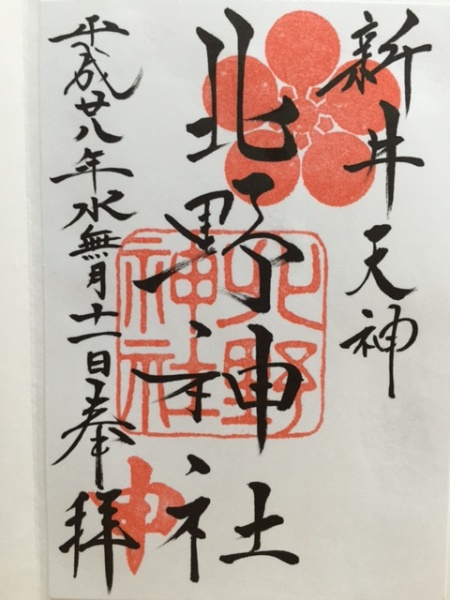 新井天神
北野神社
平成廿八年水無月十一日奉拝
北野神社
神